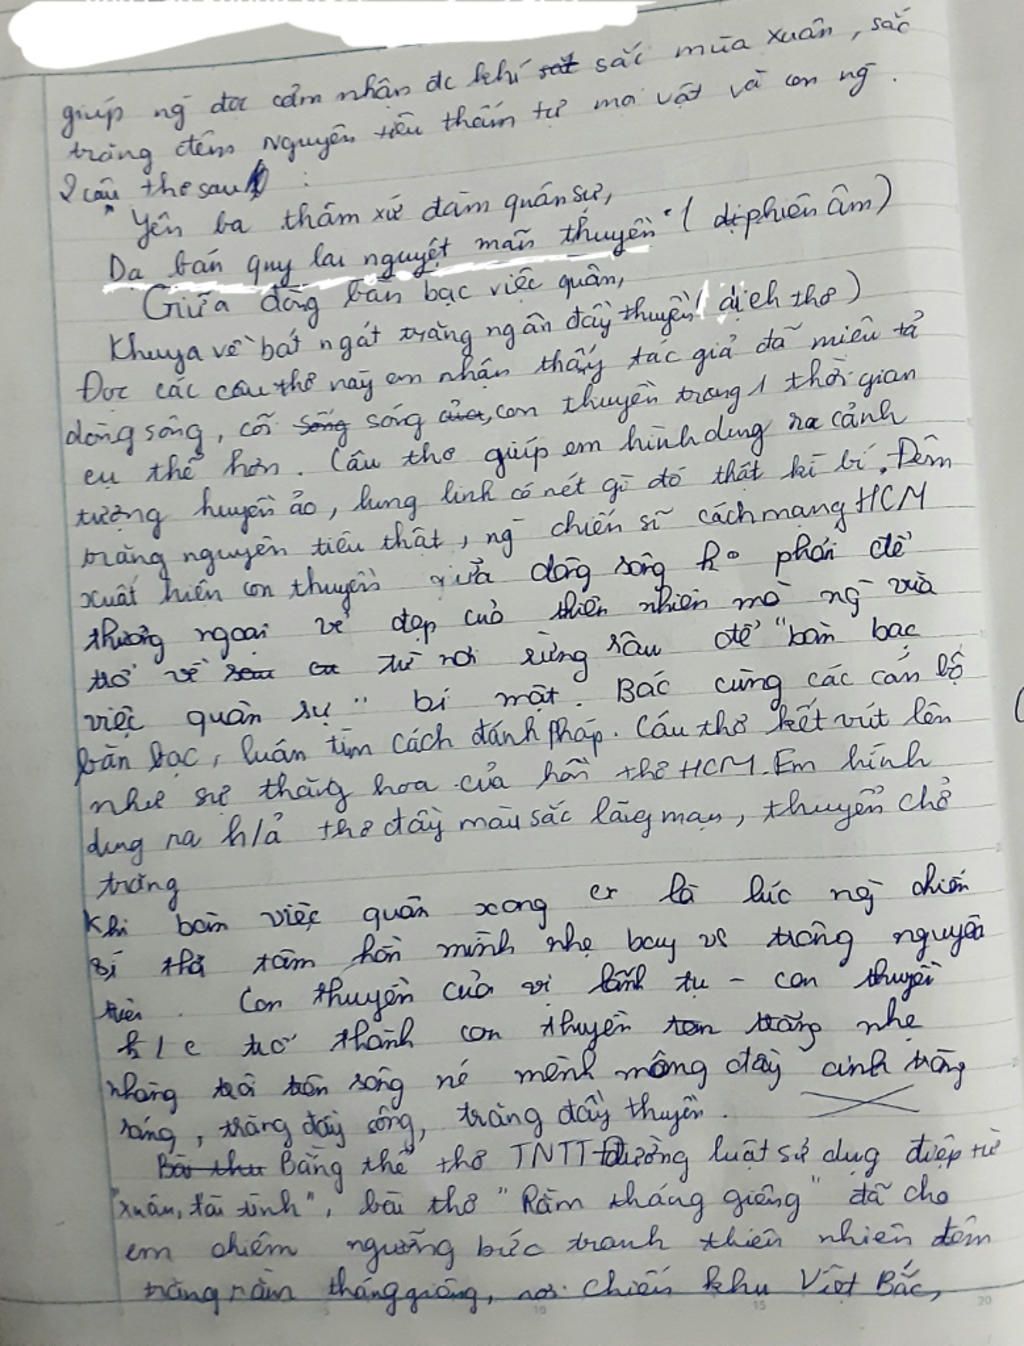 giúp ng đọc cảm nhận đc khí sắc mùa xuân, sắc
trăng đêm Nguyên tiêu thấm từ mọi vật và con ng.
2 câu thơ sau :
"Yên ba thâm xứ đàm quân sự,
Dạ bán quy lai nguyệt mãn thuyền" (phiên âm)
Giữa dòng bàn bạc việc quân,
Khuya về bát ngát trăng ngân đầy thuyền (dịch thơ)
Đọc các câu thơ này em nhận thấy tác giả đã miêu tả
dòng sông, cõi sóng, con thuyền trong 1 thời gian
cụ thể hơn. Câu thơ giúp em hình dung ra cảnh
tượng huyền ảo, lung linh có nét gì đó thật kì bí. Đêm
trăng nguyên tiêu thật, ng chiến sĩ cách mạng HCM
xuất hiện con thuyền giữa dòng sông ko phải để
thưởng ngoạn vẻ đẹp của thiên nhiên mà ng vừa
trở về từ nơi rừng sâu để "bàn bạc
việc quân sự" bí mật. Bác cùng các cán bộ
bàn bạc, luận tìm cách đánh Pháp. Câu thơ kết vút lên
như sự thăng hoa của hồn thơ HCM. Em hình
dung ra h/ả thơ đầy màu sắc lãng mạn, thuyền chở
trăng
Khi bàn việc quân xong là lúc ng chiến
sĩ thả tâm hồn mình nhẹ bay về trăng nguyên
tiêu. Con thuyền của vị lãnh tụ - con thuyền
k/c trở thành con thuyền trăng nhẹ
nhàng trôi trên sông nc mênh mông đầy ánh trăng
sáng, trăng đầy sông, trăng đầy thuyền.
Bằng thể thơ TNTT Đường luật sử dụng điệp từ
"xuân, tài tình", bài thơ "Rằm tháng giêng" đã cho
em chiêm ngưỡng bức tranh thiên nhiên đêm
trăng rằm tháng giêng, nơi chiến khu Việt Bắc,